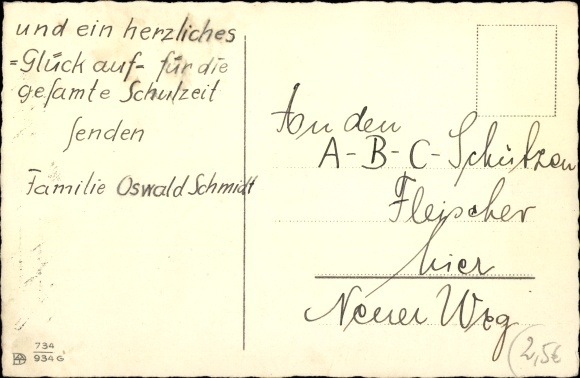 und ein herzliches
=Glück auf- für die
gesamte Schulzeit
senden
Familie Oswald Schmidt
734
934 G
An den
A-B-C-Schützen
Fleischer
hier
Neuer Weg
2,5€